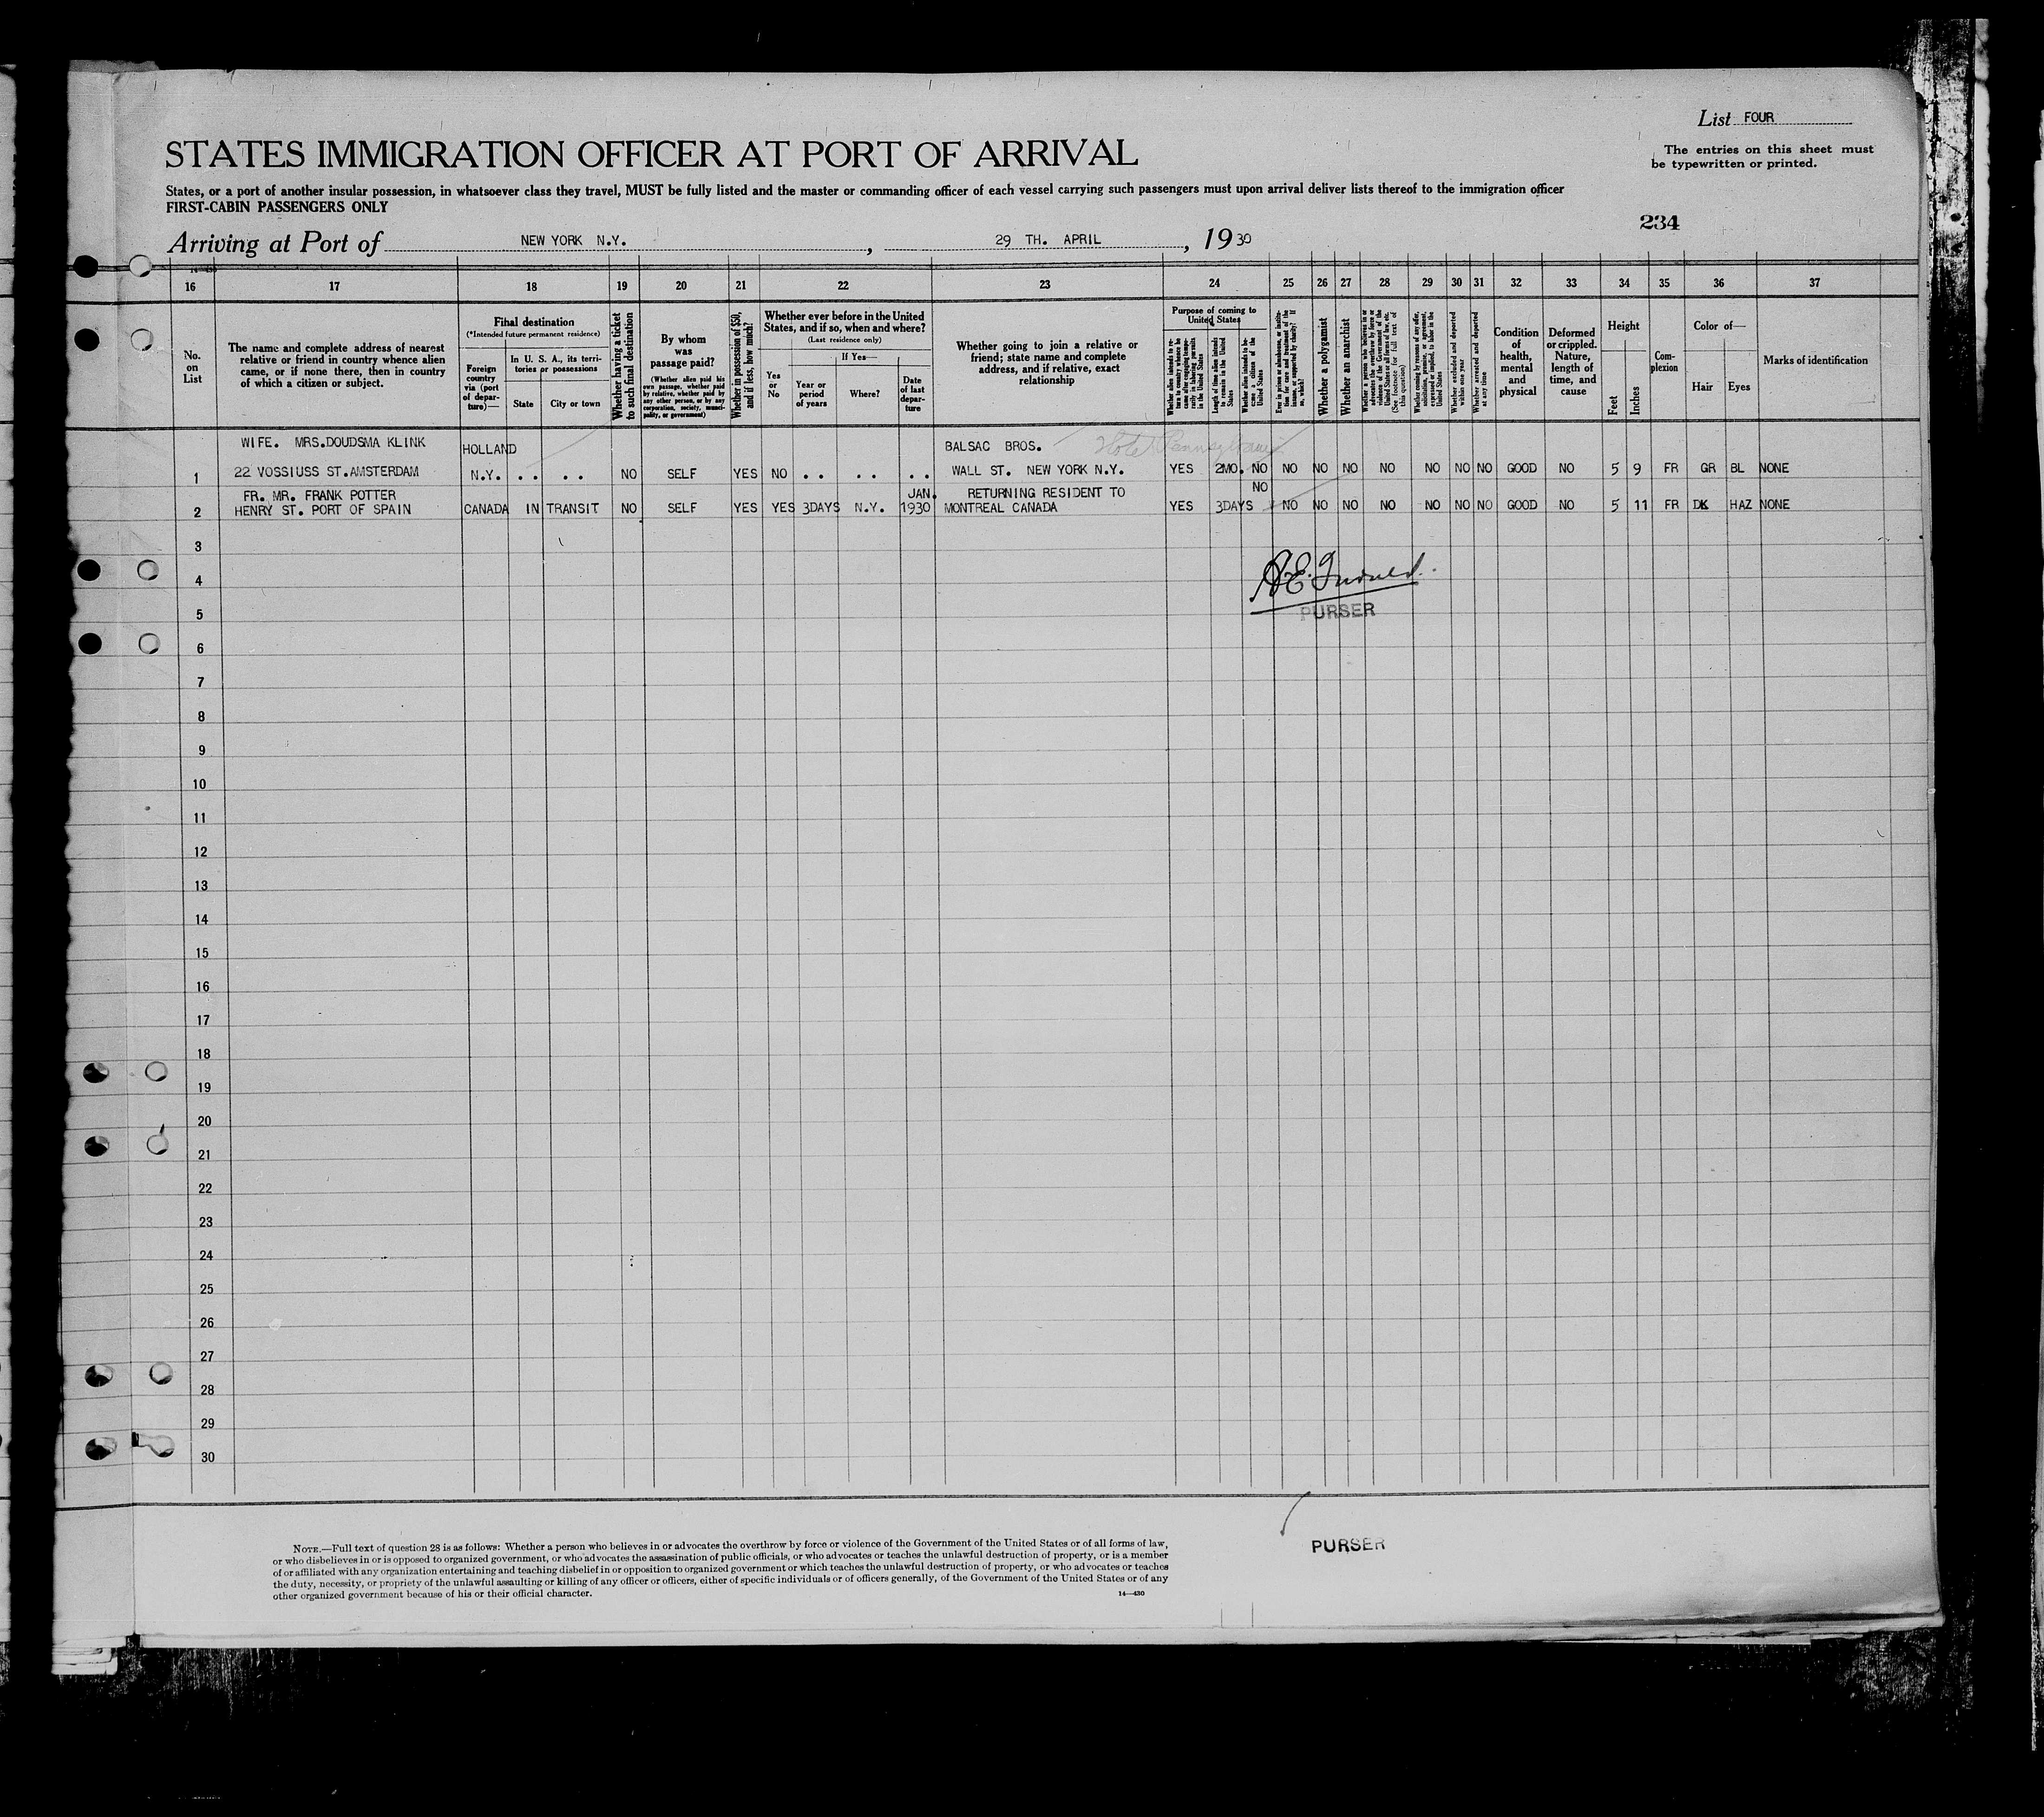 List FOUR
The entries on this sheet must
be typewritten or printed.
STATES IMMIGRATION OFFICER AT PORT OF ARRIVAL
States, or a port of another insular possession, in whatsoever class they travel, MUST be fully listed and the master or commanding officer of each vessel carrying such passengers must upon arrival deliver lists thereof to the immigration officer
FIRST-CABIN PASSENGERS ONLY
234
Arriving at Port of NEW YORK N.Y. , 29 TH. APRIL , 1930
16 17 18 19 20 21 22 23 24 25 26 27 28 29 30 31 32 33 34 35 36 37
No.
on
List
The name and complete address of nearest
relative or friend in country whence alien
came, or if none there, then in country
of which a citizen or subject.
Final destination
(*Intended future permanent residence)
Foreign
country
via (port
of depar-
ture)—
In U. S. A., its terri-
tories or possessions
State
City or town
Whether having a ticket
to such final destination
By whom
was
passage paid?
(Whether alien paid his
own passage, whether paid
by relative, whether paid by
any other person, or by any
corporation, society, munici-
pality, or government)
Whether in possession of $50,
and if less, how much?
Whether ever before in the United
States, and if so, when and where?
(Last residence only)
Yes
or
No
If Yes—
Year or
period
of years
Where?
Date
of last
depar-
ture
Whether going to join a relative or
friend; state name and complete
address, and if relative, exact
relationship
Purpose of coming to
United States
Length of time alien intends
to remain in the United
States
Whether alien intends to be-
come a citizen of the
United States
Whether a polygamist
Whether an anarchist
Whether excluded and deported
within one year
Whether arrested and deported
at any time
Condition
of
health,
mental
and
physical
Deformed
or crippled.
Nature,
length of
time, and
cause
Height
Feet
Inches
Com-
plexion
Color of—
Hair
Eyes
Marks of identification
WIFE. MRS.DOUDSMA KLINK HOLLAND BALSAC BROS. Hotel Pennsylvania
1 22 VOSSIUSS ST.AMSTERDAM N.Y. .. .. NO SELF YES NO .. .. .. WALL ST. NEW YORK N.Y. YES 2MO. NO NO NO NO NO NO NO NO GOOD NO 5 9 FR GR BL NONE
FR. MR. FRANK POTTER JAN. RETURNING RESIDENT TO NO
2 HENRY ST. PORT OF SPAIN CANADA IN TRANSIT NO SELF YES YES 3DAYS N.Y. 1930 MONTREAL CANADA YES 3DAYS NO NO NO NO NO NO NO GOOD NO 5 11 FR DK HAZ NONE
3
4
PURSER
5
6
7
8
9
10
11
12
13
14
15
16
17
18
19
20
21
22
23
24
25
26
27
28
29
30
PURSER
NOTE.—Full text of question 28 is as follows: Whether a person who believes in or advocates the overthrow by force or violence of the Government of the United States or of all forms of law,
or who disbelieves in or is opposed to organized government, or who advocates the assassination of public officials, or who advocates or teaches the unlawful destruction of property, or is a member
of or affiliated with any organization entertaining and teaching disbelief in or opposition to organized government or which teaches the unlawful destruction of property, or who advocates or teaches
the duty, necessity, or propriety of the unlawful assaulting or killing of any officer or officers, either of specific individuals or of officers generally, of the Government of the United States or of any
other organized government because of his or their official character.
14—430